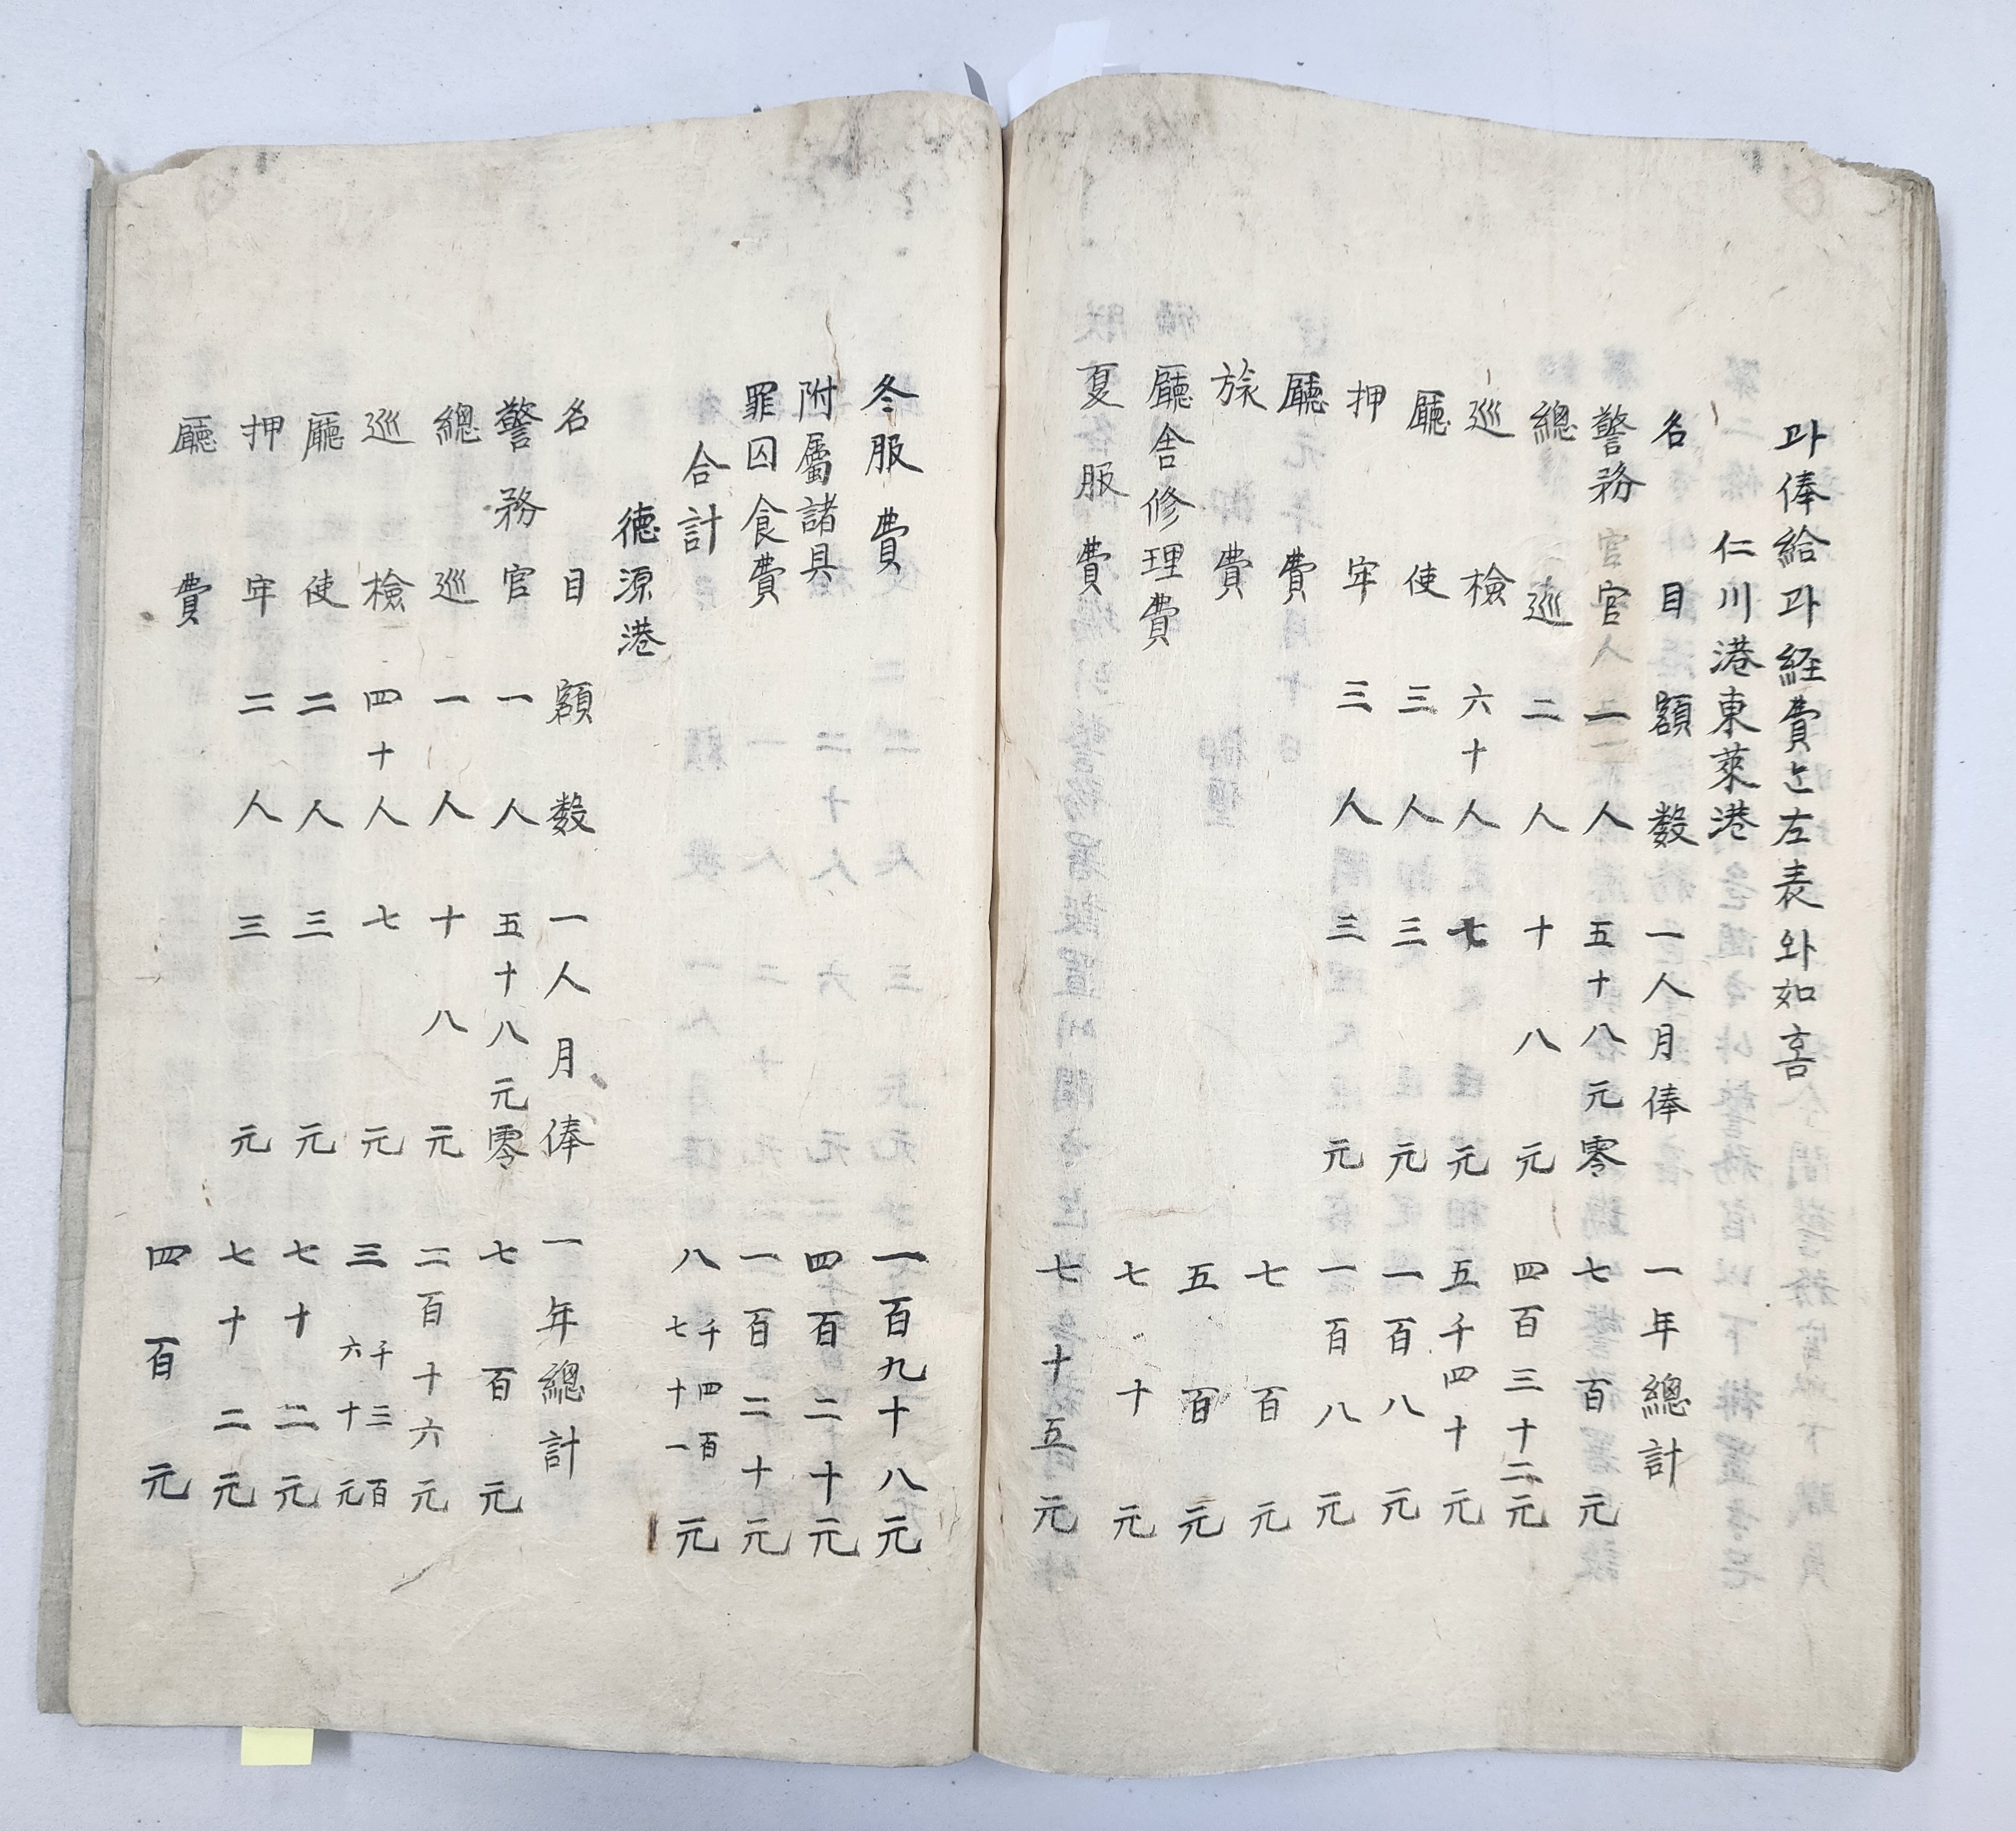 과俸給과経費는左表와如홈
仁川港東萊港
名目 額數 一人月俸 一年總計
警務官 一人 五十八元零 七百元
總巡 二人 十八元 四百三十二元
巡檢 六十人 七元 五千四十元
廳使 三人 三元 一百八元
押牢 三人 三元 一百八元
廳費 七百元
旅費 五百元
廳舍修理費 七十元
夏服費 七十五元
冬服費 一百九十八元
附屬諸具 四百二十元
罪囚食費 一百二十元
合計 八千四百七十一元
徳源港
名目 額數 一人月俸 一年總計
警務官 一人 五十八元零 七百元
總巡 一人 十八元 二百十六元
巡檢 四十人 七元 三千三百六十元
廳使 二人 三元 七十二元
押牢 二人 三元 七十二元
廳費 四百元